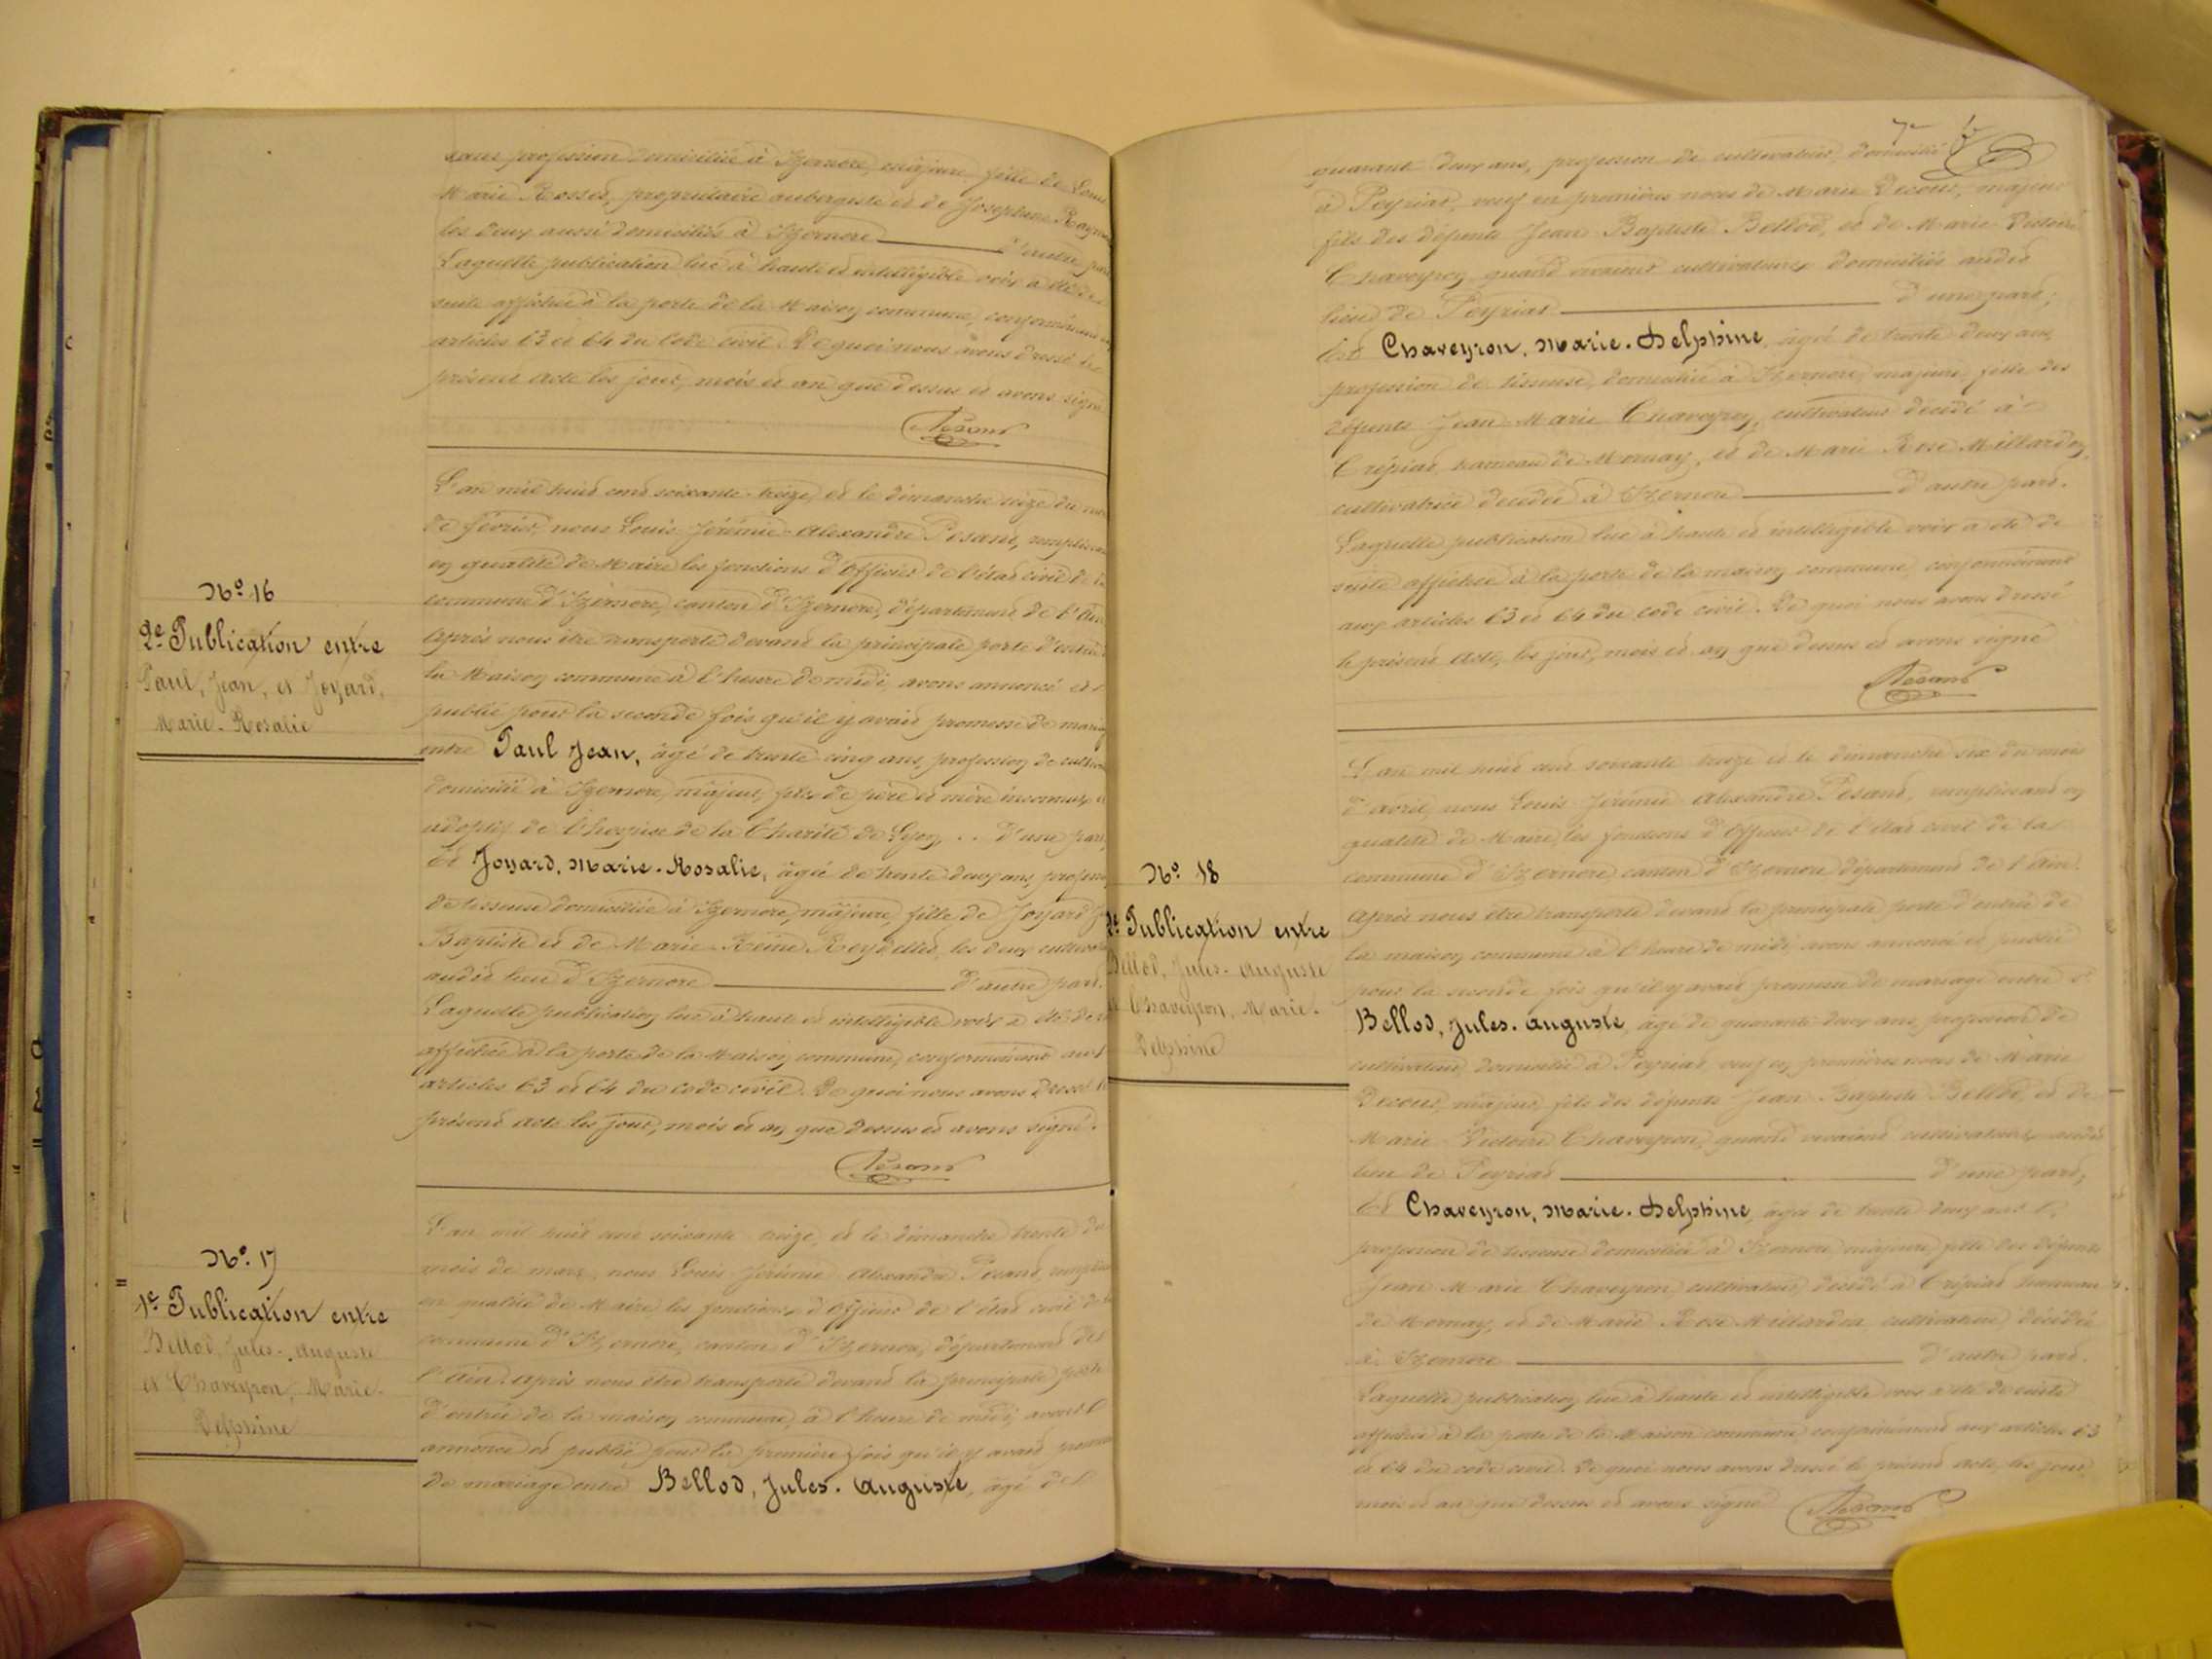 sans profession domiciliée à Izernore, majeure fille de Louis
Marie Rosset, propriétaire aubergiste et de Josephine
les deux aussi domiciliés à Izernore d'autre part
Laquelle publication lue à haute et intelligible voix a été de
suite affichée à la porte de la Maison commune, conformément
articles 63 et 64 du Code civil. De quoi nous avons dressé le
présent acte les jour, mois et an que dessus et avons signé
Pésand
Nº 16
2e Publication entre
Paul, Jean, et Joyard,
Marie-Rosalie
L'an mil huit cent soixante-treize, et le dimanche seize du
de février, nous Louis-Jérémie-Alexandre Pésand, remplissant
en qualité de Maire les fonctions d'Officier de l'état civil de la
commune d'Izernore, canton d'Izernore, département de l'Ain
Après nous être transporté devant la principale porte d'entrée
la Maison commune à l'heure de midi, avons annoncé et
publié pour la seconde fois qu'il y avait promesse de mariage
entre Paul Jean, âgé de trente cinq ans, profession de
domicilié à Izernore, majeur, fils de père et mère inconnus,
adoptif de l'hospice de la Charité de Lyon .. D'une part,
Et Joyard, Marie-Rosalie, âgée de trente deux ans, profession
de tisseuse domiciliée à Izernore, majeure, fille de Joyard
Baptiste et de Marie-Reine Reydellet, les deux
audit lieu d'Izernore d'autre part.
Laquelle publication lue à haute et intelligible voix a été de
affichée à la porte de la Maison commune, conformément aux
articles 63 et 64 du Code civil. De quoi nous avons dressé le
présent acte les jour, mois et an que dessus et avons signé.
Pésand
Nº 17
1e Publication entre
Bellod, Jules-Auguste
et Chaveyron, Marie-
Delphine
L'an mil huit cent soixante treize, et le dimanche trente du
mois de mars, nous Louis Jérémie Alexandre Pésand,
en qualité de Maire les fonctions d'Officier de l'état civil de la
commune d'Izernore, canton d'Izernore, département de
l'Ain. Après nous être transporté devant la principale porte
d'entrée de la maison commune, à l'heure de midi, avons
annoncé et publié pour la première fois qu'il y avait promesse
de mariage entre Bellod, Jules-Auguste, âgé de
7
quarante deux ans, profession de cultivateur, domicilié
à Peyriat, veuf en premières noces de Marie Decour, majeur
fils des défunts Jean Baptiste Bellod, et de Marie Victoire
Chaveyron, quand vivaient cultivateurs domiciliés audit
lieu de Peyriat d'une part;
Et Chaveyron, Marie-Delphine, âgée de trente deux ans,
profession de tisseuse, domiciliée à Izernore, majeure, fille des
défunts Jean Marie Chaveyron, cultivateur décédé à
Crépiat hameau de Mornay, et de Marie Rose Millardon,
cultivatrice décédée à Izernore d'autre part.
Laquelle publication lue à haute et intelligible voix a été de
suite affichée à la porte de la maison commune, conformément
aux articles 63 et 64 du code civil. De quoi nous avons dressé
le présent acte, les jour, mois et an que dessus et avons signé
Pésand
Nº 18
2e Publication entre
Bellod, Jules-Auguste
et Chaveyron, Marie-
Delphine
L'an mil huit cent soixante treize et le dimanche six du mois
d'avril, nous Louis Jérémie Alexandre Pésand, remplissant en
qualité de Maire les fonctions d'Officier de l'état civil de la
commune d'Izernore canton d'Izernore département de l'Ain.
Après nous être transporté devant la principale porte d'entrée de
la maison commune à l'heure de midi, avons annoncé et publié
pour la seconde fois qu'il y avait promesse de mariage entre
Bellod, Jules-Auguste âgé de quarante deux ans, profession de
cultivateur domicilié à Peyriat veuf en premières noces de Marie
Decour, majeur, fils des défunts Jean Baptiste Bellod, et de
Marie-Victoire Chaveyron, quand vivaient cultivateurs audit
lieu de Peyriat d'une part,
Et Chaveyron, Marie-Delphine, âgée de trente deux ans,
profession de tisseuse domiciliée à Izernore majeure fille des défunts
Jean Marie Chaveyron cultivateur, décédé à Crépiat hameau
de Mornay, et de Marie Rose Millardon cultivatrice décédée
à Izernore d'autre part.
Laquelle publication lue à haute et intelligible voix a été de suite
affichée à la porte de la Maison commune conformément aux articles 63
et 64 du code civil. De quoi nous avons dressé le présent acte, les jour,
mois et an que dessus et avons signé Pésand